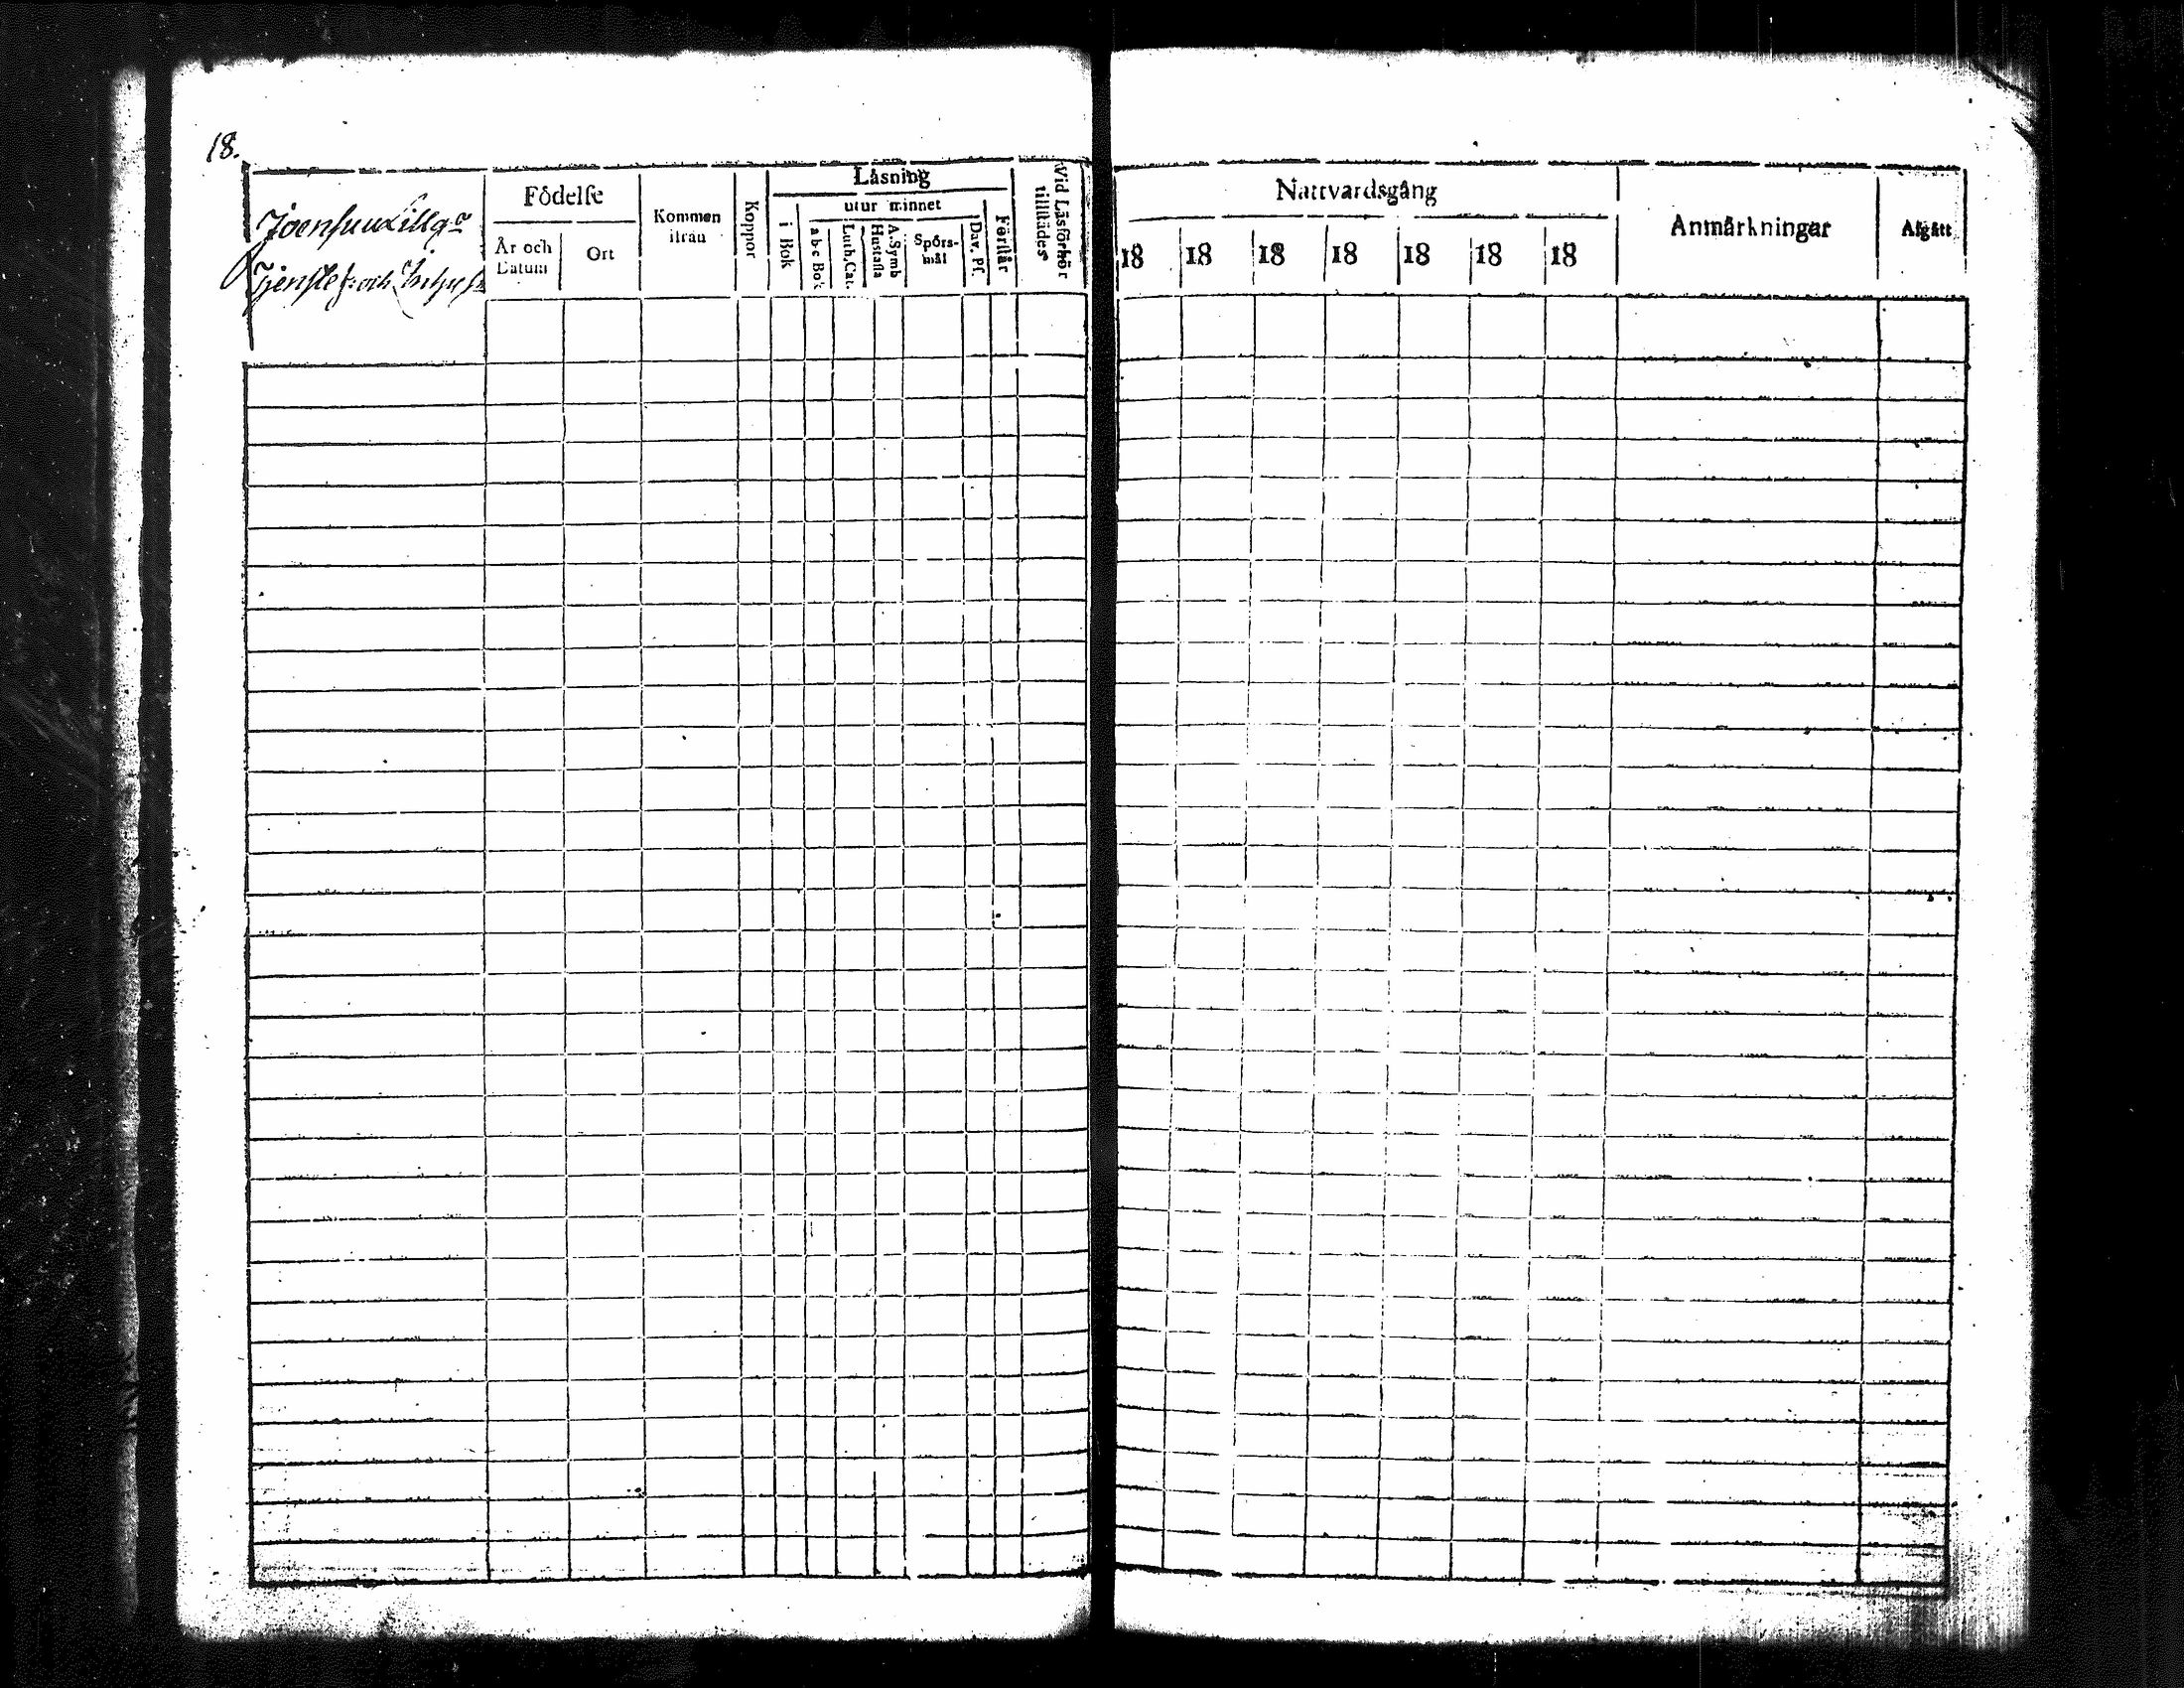 18.
Joensuu Lillg:
Tjenste f: och Inhyses
Födelse
År och Datum
Ort
Kommen ifrån
Koppor
Läsning
i Bok
utur minnet
a b c Bok
Luth. Cat.
Hustafla
A. Symb
Spörs-
mål
Dav. Ps.
Förstår
Vid Läsförhör
tillstädes
Nattvardsgång
18 18 18 18 18 18 18
Anmärkningar
Afgått